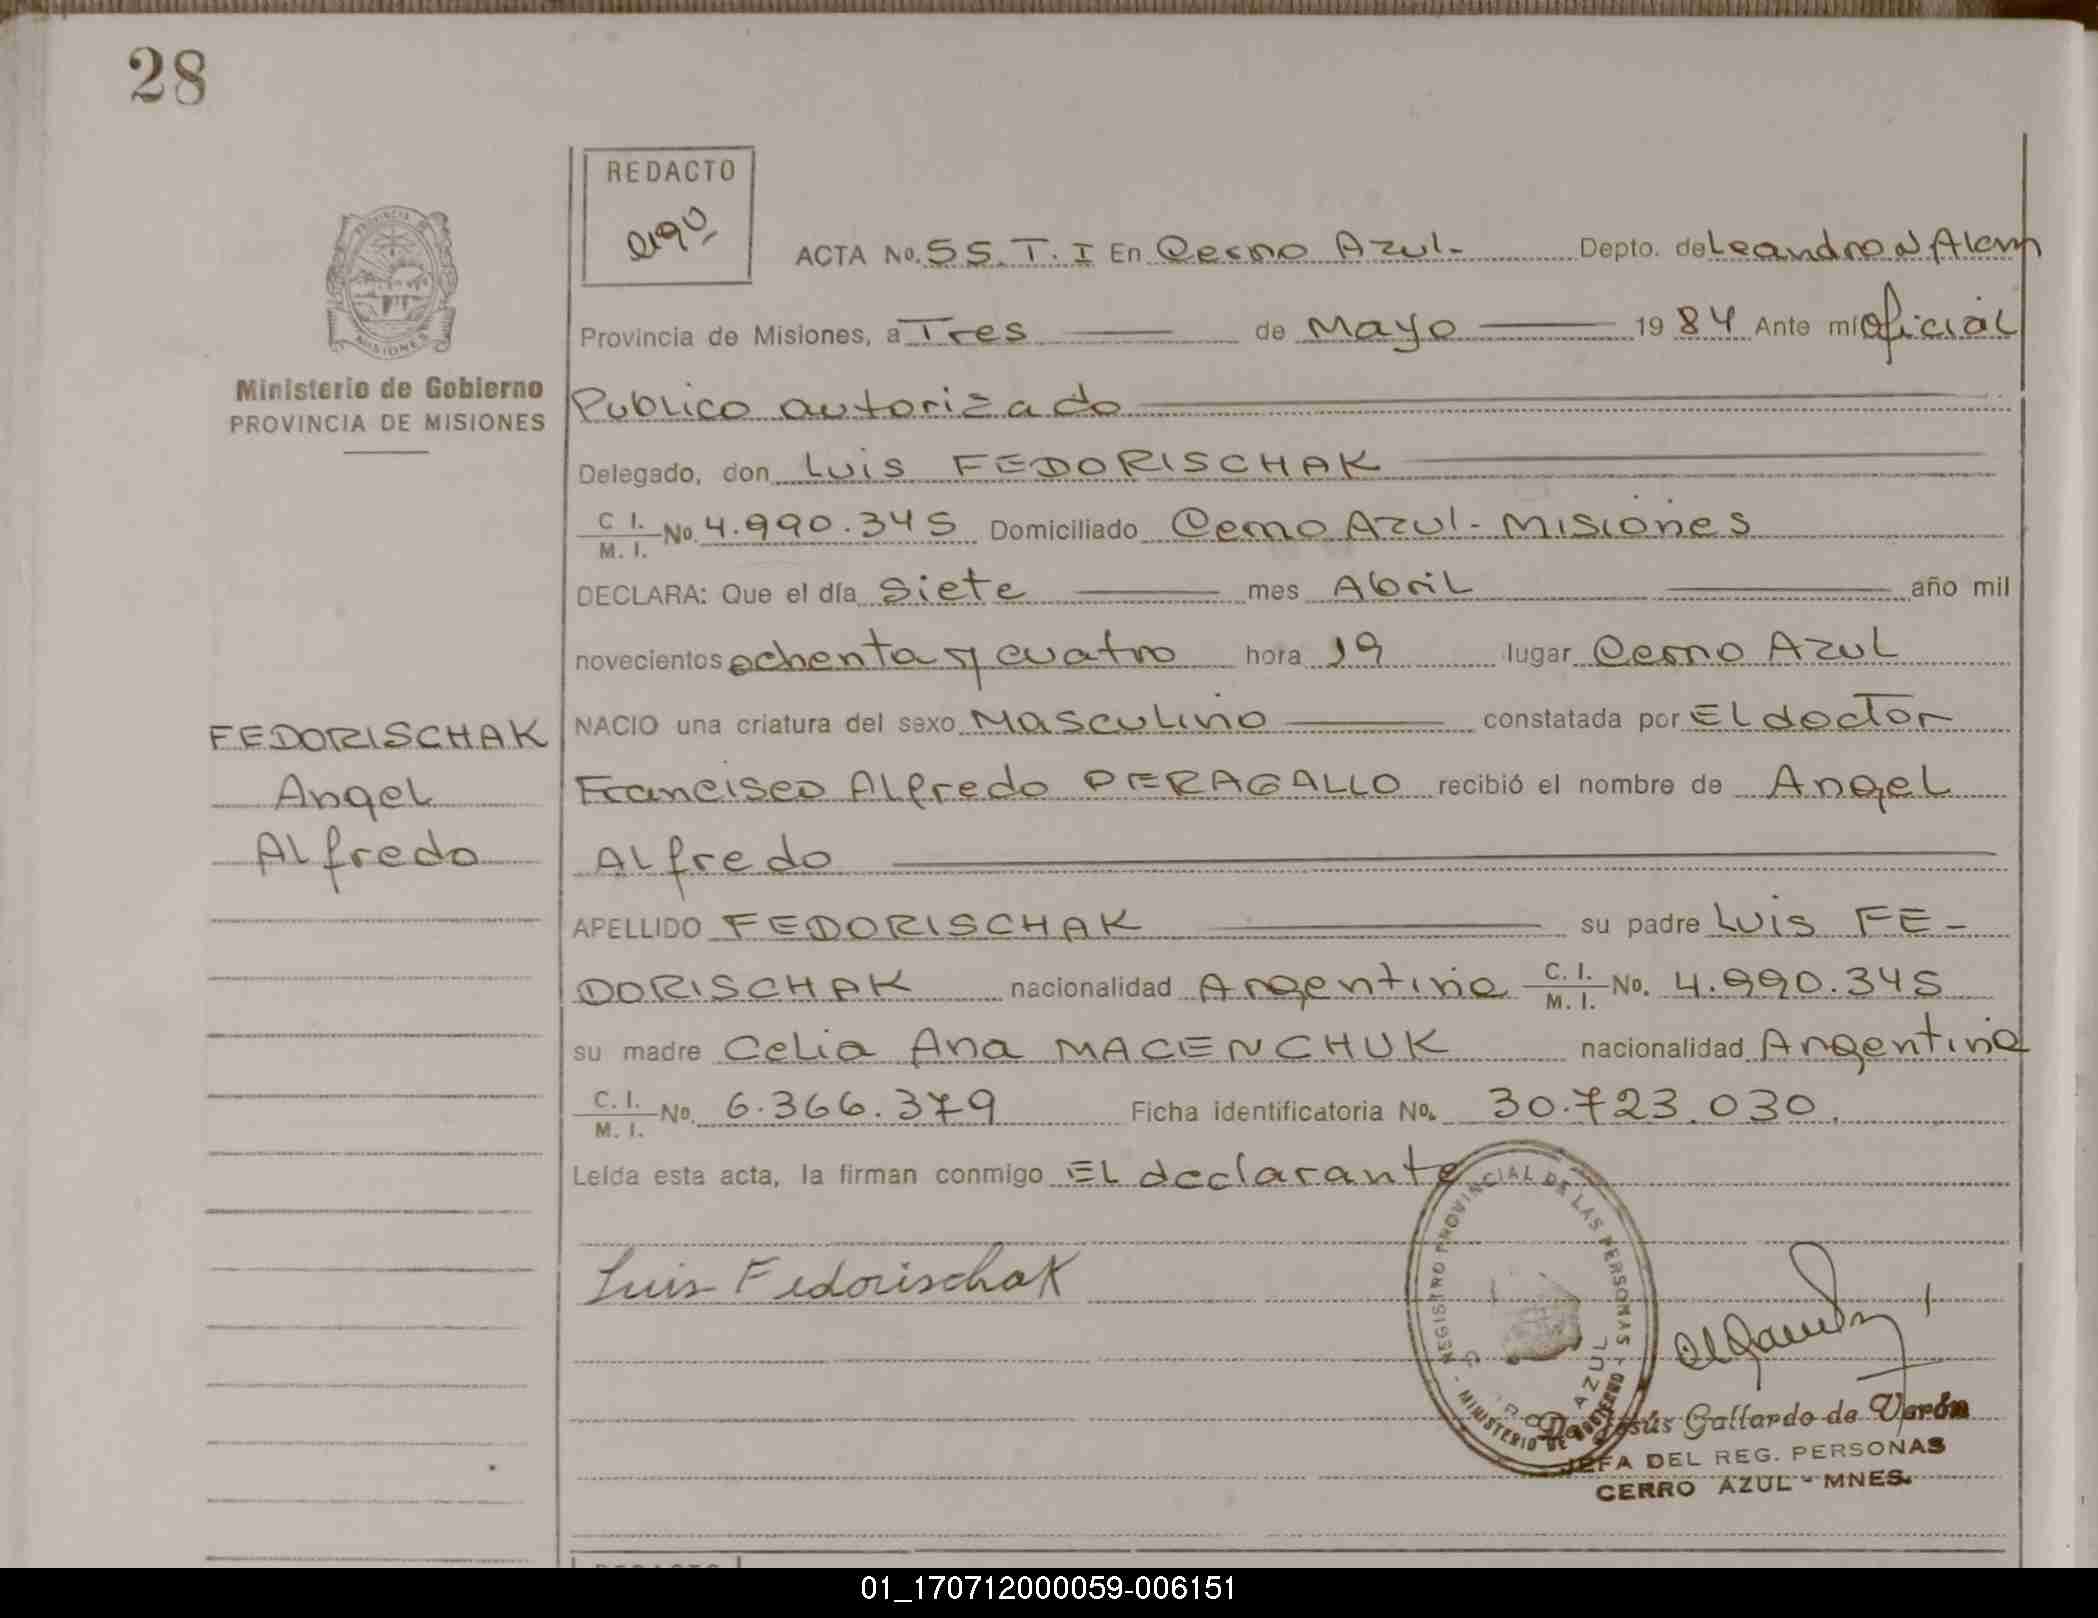 28
REDACTO
ACTA No. 55. T. I En Cerro Azul- Depto. de Leandro N Alem
Provincia de Misiones, a Tres de Mayo 1984 Ante mí oficial
Publico autorizado
Delegado, don Luis FEDORISCHAK
C I. M. I. No. 4.990.345 Domiciliado Cerro Azul - Misiones
DECLARA: Que el día Siete mes Abril año mil
novecientos ochenta y cuatro hora 19 lugar Cerro Azul
NACIO una criatura del sexo Masculino constatada por El doctor
Francisco Alfredo PERAGALLO recibió el nombre de Angel
Alfredo
APELLIDO FEDORISCHAK su padre Luis FE-
DORISCHAK nacionalidad Argentina C. I. M. I. No. 4.990.345
su madre Celia Ana MACENCHUK nacionalidad Argentina
C. I. M. I. No. 6.366.379 Ficha identificatoria No. 30.723.030.
Leída esta acta, la firman conmigo El declarante
Luis Fedorischak
PROVINCIA
MISIONES
Ministerio de Gobierno
PROVINCIA DE MISIONES
FEDORISCHAK
Angel
Alfredo
REGISTRO PROVINCIAL DE LAS PERSONAS - MINISTERIO DE GOBIERNO
AZUL
Jesús Gallardo de Verón
JEFA DEL REG. PERSONAS
CERRO AZUL - MNES.
01_170712000059-006151